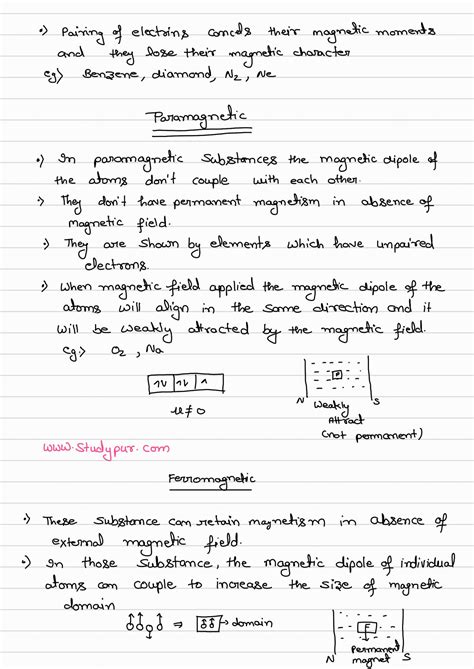 •) Pairing of electrins concds their magnetic moments
and they lose their magnetic character
eg) Benzene, diamond, N2, Ne
Paramagnetic
•) In paromagnetic Substances the magnetic dipole of
the atoms don't couple with each other.
•) They don't have permanent magnetism in absence of
magnetic field.
•) They are shown by elements which have unpaired
electrons.
•) When magnetic field applied the magnetic dipole of the
atoms will align in the same direction and it
will be weakly attracted by the magnetic field.
eg:) O2, Na
1V 1V 1
P
N S
μ≠0
Weakly
Attract
(not permanent)
www.studypur.com
Ferromagnetic
•) These Substance can retain magnetism in absence of
external magnetic field.
•) In those Substance, the magnetic dipole of individual
atoms can couple to increase the size of magnetic
domain
⇒ → domain
F
N Permanent S
magnet